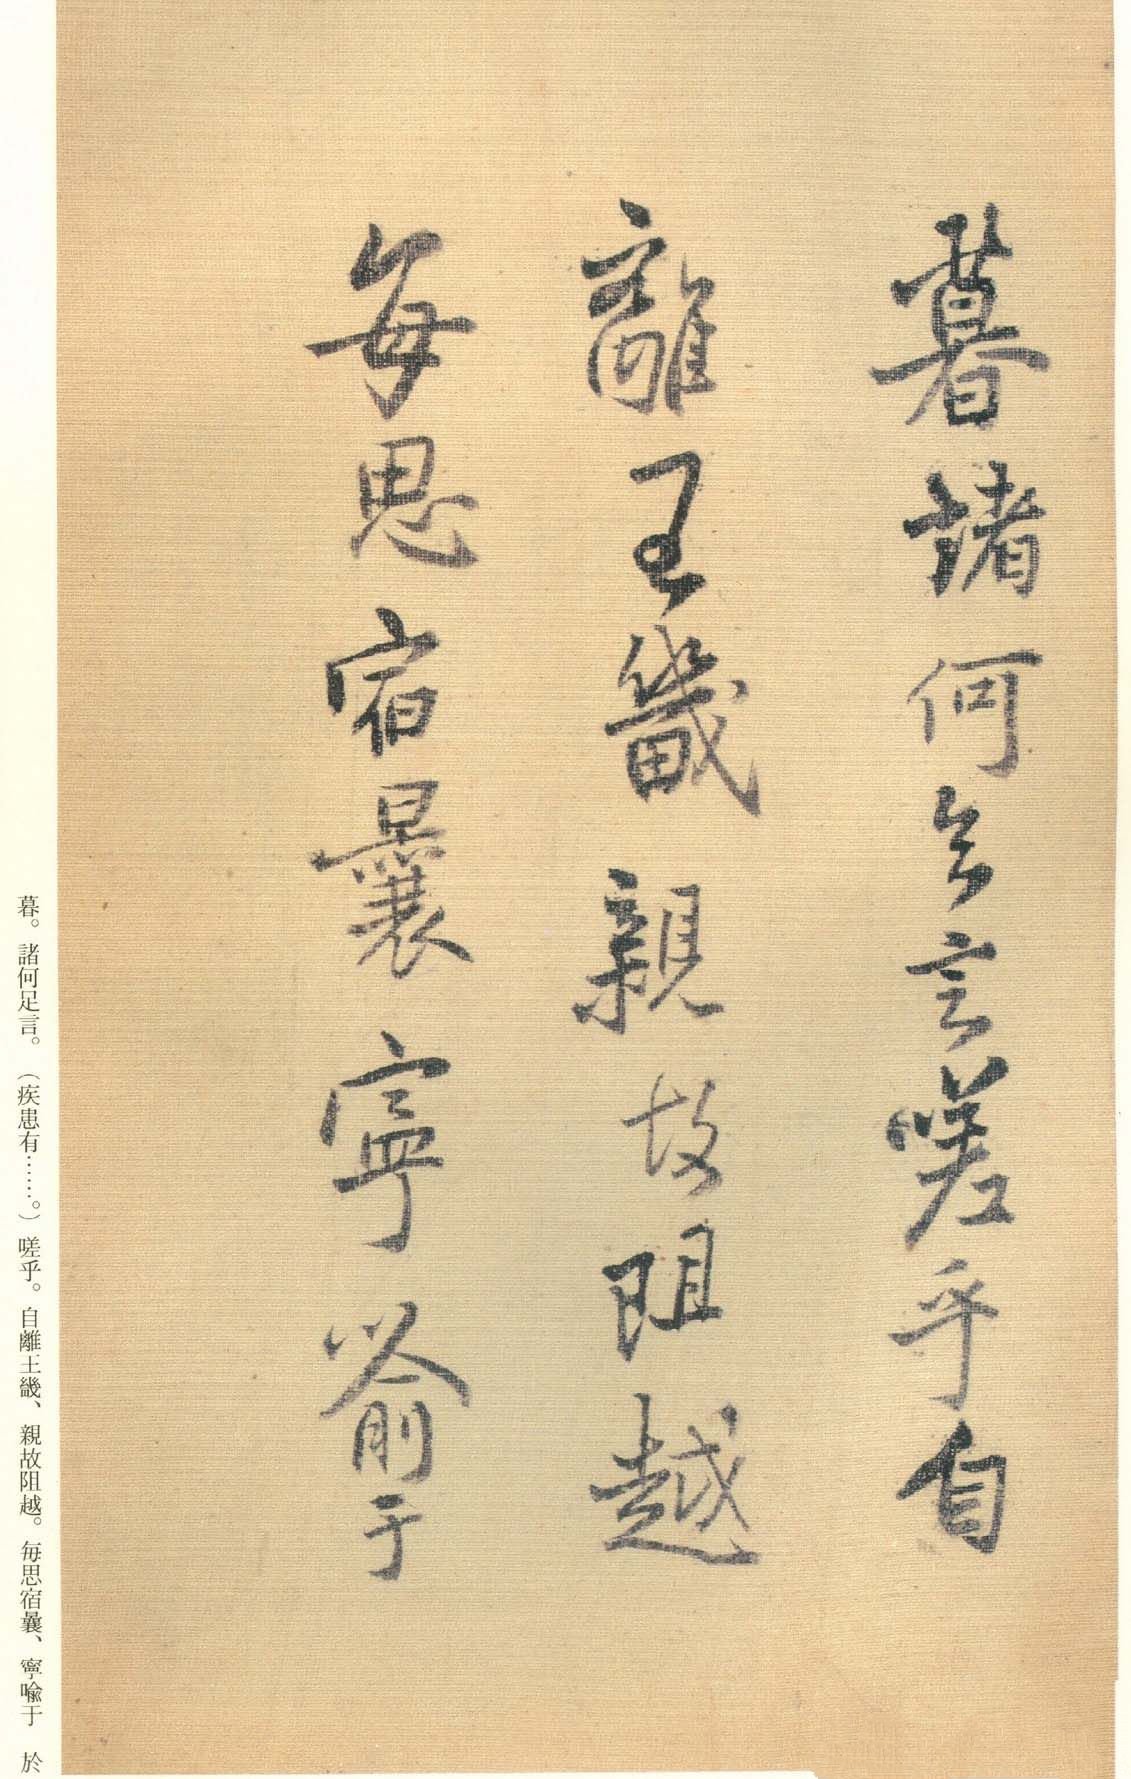 暮諸何足言嗟乎自
離王畿親故阻越
每思宿曩寧喻于
暮。諸何足言。（疾患有……。）嗟乎。自離王畿、親故阻越。毎思宿曩、寧喩于　於